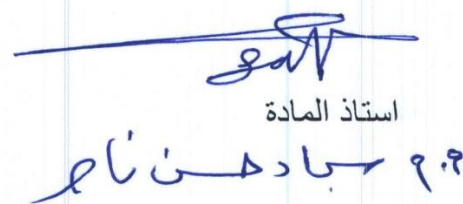 استاذ المادة
م.م سجاد حسن ناجر